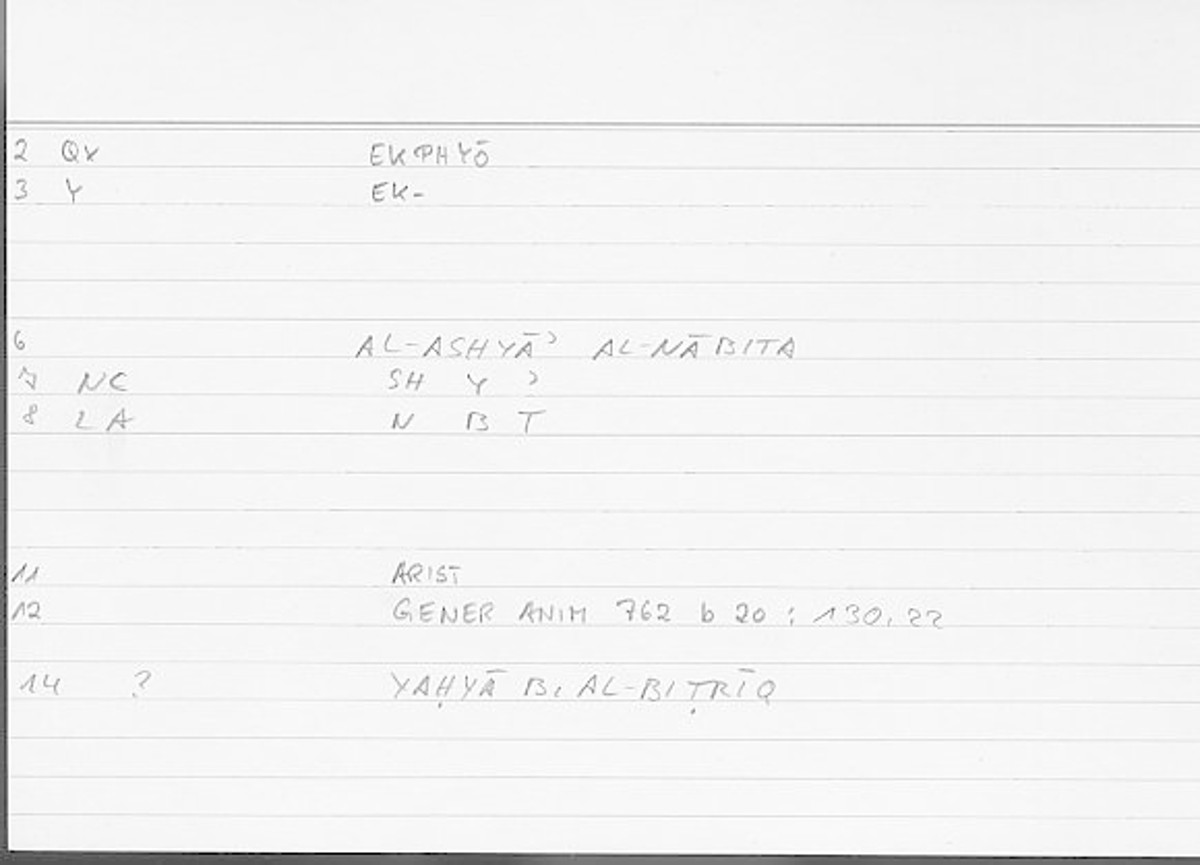 2 QV EKPHYŌ
3 Y EK-
6 AL-ASHYĀʾ AL-NĀBITA
7 NC SH Y ʾ
8 LA N B T
11 ARIST
12 GENER ANIM 762 b 20 : 130,22
14 ? YAḤYĀ B. AL-BIṬRĪQ